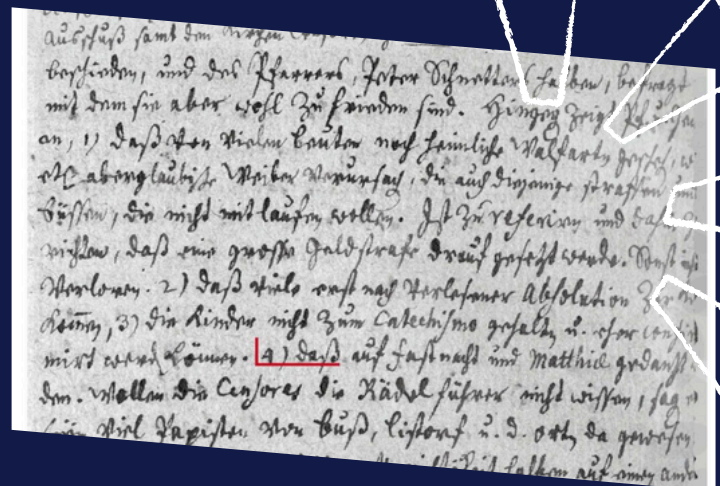 Ausschuß samt den
beschieden, und des Pfarrers, Peter Schnetters halben, befragt
mit dem sie aber wohl zu frieden sind. Hingeg zeigt
an, 1) daß von vielen Leuten noch heimliche Walfartn gescheh,
etl. abergläubische Weiber verursach, die auch diejenige straffen und
büssen, die nicht mit lauffen wollen. Ist zu referirn und
richten, daß eine grosse Geldstrafe drauf gesetzt werde. Sonst
verloren. 2) daß viele erst nach verlesener Absolution
kom̄en, 3) die Kinder nicht zum Catechismo gehaltn u.
mirt werd können. 4) daß auf Fastnacht und Matthiæ gedantzt
den. Wollen die Censores die Rädelführer nicht wissen, sag
viel Papisten von Buß, Listorf u. d. ortn da gewesen.
halben auf einen